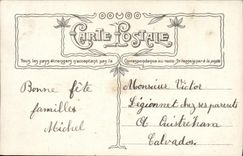 CARTE POSTALE
Tous les pays étrangers n'acceptent pas la Correspondance au recto.
Bonne fête
familles
Michel
Monsieur Victor
Légionnet chez ses parents
A Ouistreham
Calvados.